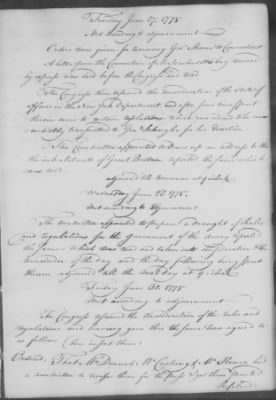 Tuesday June 27. 1775
Met according to adjournment
Orders were given for removing Gov. Skene to Connecticut
A letter from the Convention of Massachusetts bay received
by express was laid before the Congress and read
The Congress then resumed the consideration of the State of
affairs in the New York Department and after some time spent
therein came to certain resolutions which were ordered to be imme
diately transmitted to Gen. Schuyler for his direction
The Committee appointed to draw up an address to the
the inhabitants of Great Britain reported the same which
was read.
adjourned till tomorrow at 9 o'clock
Wednesday June 28. 1775.
Met according to adjournment
The committee appointed to prepare a draught of Rules
and regulations for the government of the Army reported
the same which was read and taken into consideration & the
remainder of the day and the day following being spent
therein adjourned till the next day at 9 o'clock
Friday June 30. 1775
Met according to adjournment
The Congress resumed the consideration of the rules and
regulations and having gone thro the same they were agreed to
as follows (here insert them)
Ordered, That Mr Deane, Mr Cushing & Mr be
a committee to revise them for the press & get them printed